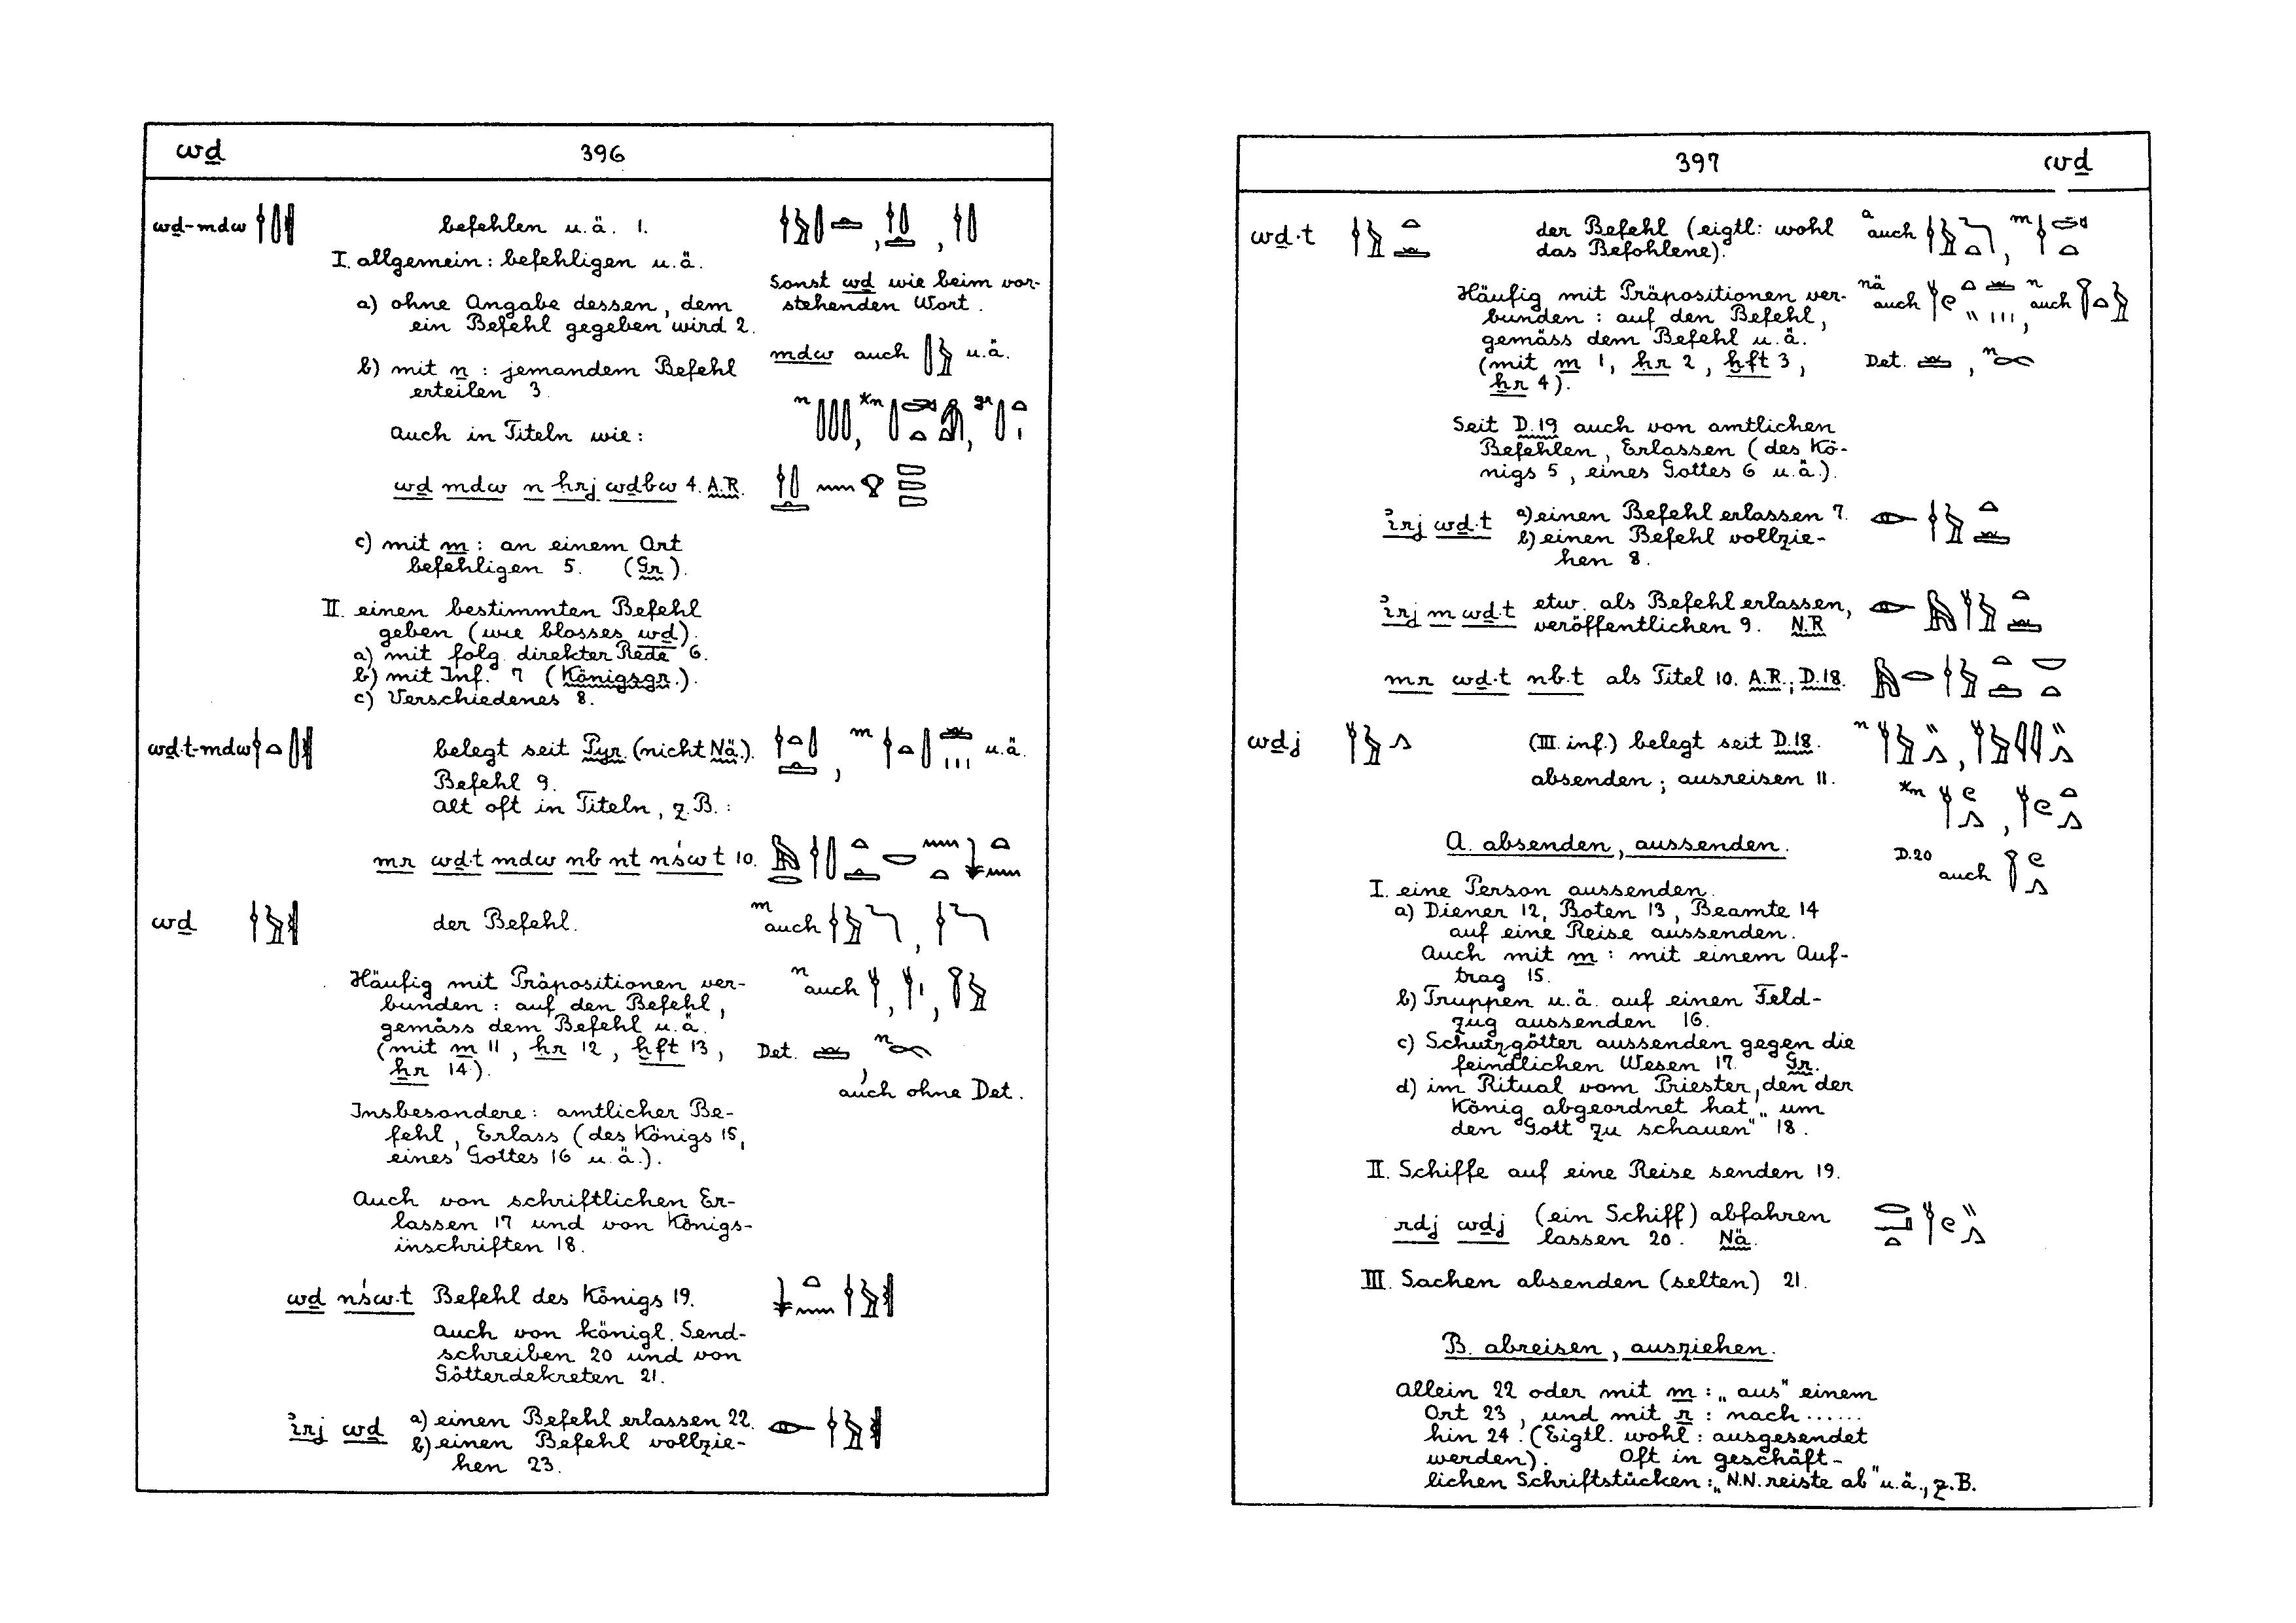 wḏ 396
wḏ-mdw befehlen u.ä. 1.
I. allgemein: befehligen u.ä.
Sonst wḏ wie beim vor-
stehenden Wort.
a) ohne Angabe dessen, dem
ein Befehl gegeben wird 2.
mdw auch u.ä.
b) mit n : jemandem Befehl
erteilen 3.
n *n gr
Auch in Titeln wie:
wḏ mdw n ḥrj wḏbw 4. A.R.
c) mit m : an einem Ort
befehligen 5. (Gr.).
II. einen bestimmten Befehl
geben (wie blosses wḏ).
a) mit folg. direkter Rede 6.
b) mit Inf. 7 (Königsgr.).
c) Verschiedenes 8.
wḏ·t-mdw belegt seit Pyr. (nicht Nä.). m u.ä.
Befehl 9.
Alt oft in Titeln, z.B.:
mr wḏ·t mdw nb nt nśw·t 10.
wḏ der Befehl. m auch
Häufig mit Präpositionen ver-
bunden: auf den Befehl,
gemäss dem Befehl u.ä.
(mit m 11, ḥr 12, ḫft 13,
ẖr 14).
n auch
Det. , n
auch ohne Det.
Insbesondere: amtlicher Be-
fehl, Erlass (des Königs 15,
eines Gottes 16 u.ä.).
Auch von schriftlichen Er-
lassen 17 und von Königs-
inschriften 18.
wḏ nśw·t Befehl des Königs 19.
auch von königl. Send-
schreiben 20 und von
Götterdekreten 21.
irj wḏ a) einen Befehl erlassen 22.
b) einen Befehl vollzie-
hen 23.
397 wḏ
wḏ·t der Befehl (eigtl: wohl
das Befohlene).
a auch , m
Häufig mit Präpositionen ver-
bunden: auf den Befehl,
gemäss dem Befehl u.ä.
(mit m 1, ḥr 2, ḫft 3,
ẖr 4).
nä auch , n auch
Det. , n
Seit D.19 auch von amtlichen
Befehlen, Erlassen (des Kö-
nigs 5, eines Gottes 6 u.ä.).
irj wḏ·t a) einen Befehl erlassen 7.
b) einen Befehl vollzie-
hen 8.
irj m wḏ·t etw. als Befehl erlassen,
veröffentlichen 9. N.R
mr wḏ·t nb·t als Titel 10. A.R.; D.18.
wḏj (III. inf.) belegt seit D.18. n
absenden; ausreisen 11.
*n
A. absenden, aussenden.
D.20 auch
I. eine Person aussenden.
a) Diener 12, Boten 13, Beamte 14
auf eine Reise aussenden.
Auch mit m : mit einem Auf-
trag 15.
b) Truppen u.ä. auf einen Feld-
zug aussenden 16.
c) Schutzgötter aussenden gegen die
feindlichen Wesen 17. Gr.
d) im Ritual vom Priester, den der
König abgeordnet hat „um
den Gott zu schauen" 18.
II. Schiffe auf eine Reise senden 19.
rdj wḏj (ein Schiff) abfahren
lassen 20. Nä.
III. Sachen absenden (selten) 21.
B. abreisen, ausziehen.
Allein 22 oder mit m : „aus" einem
Ort 23, und mit r : nach ......
hin 24. (Eigtl. wohl: ausgesendet
werden). Oft in geschäft-
lichen Schriftstücken: „N.N. reiste ab" u.ä., z.B.